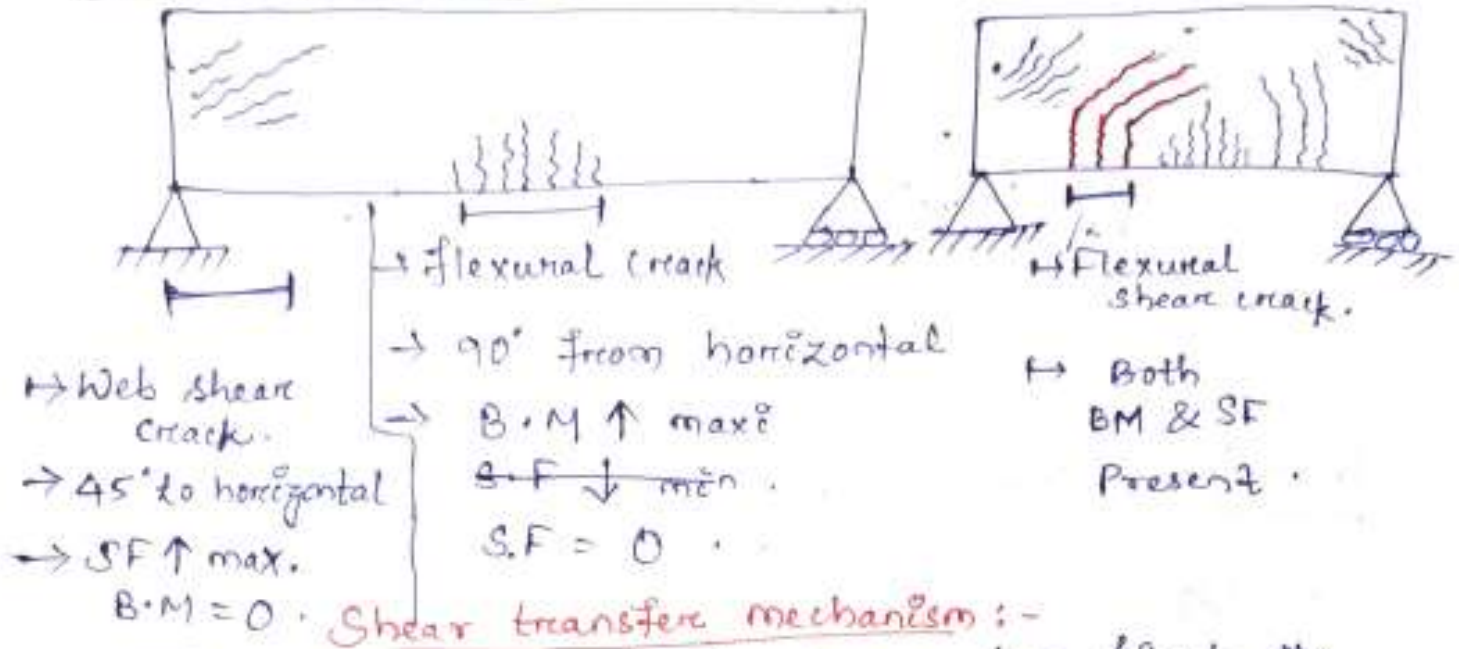 ↦ Web shear
crack.
→ 45° to horizontal
→ SF ↑ max.
B.M = 0.
→ flexural crack
→ 90° from horizontal
→ B.M ↑ maxi
S.F ↓ min.
S.F = 0.
↦ Flexural
shear crack.
↦ Both
BM & SF
Present.
Shear transfer mechanism :-